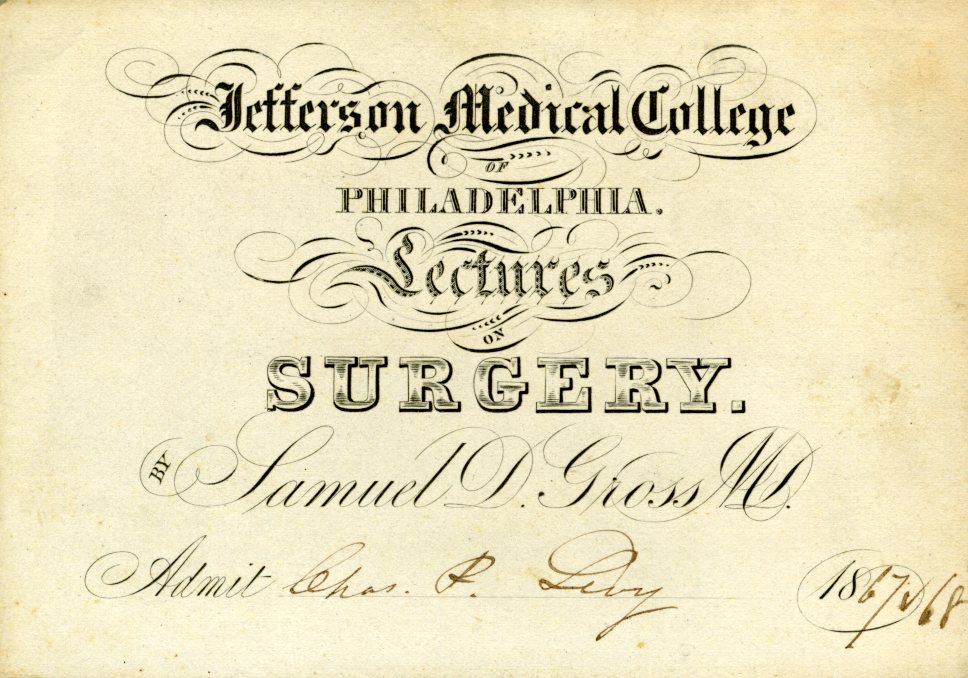 Jefferson Medical College
OF
PHILADELPHIA.
Lectures
ON
SURGERY.
BY Samuel D. Gross MD.
Admit Chas. P. Levy 1867/68